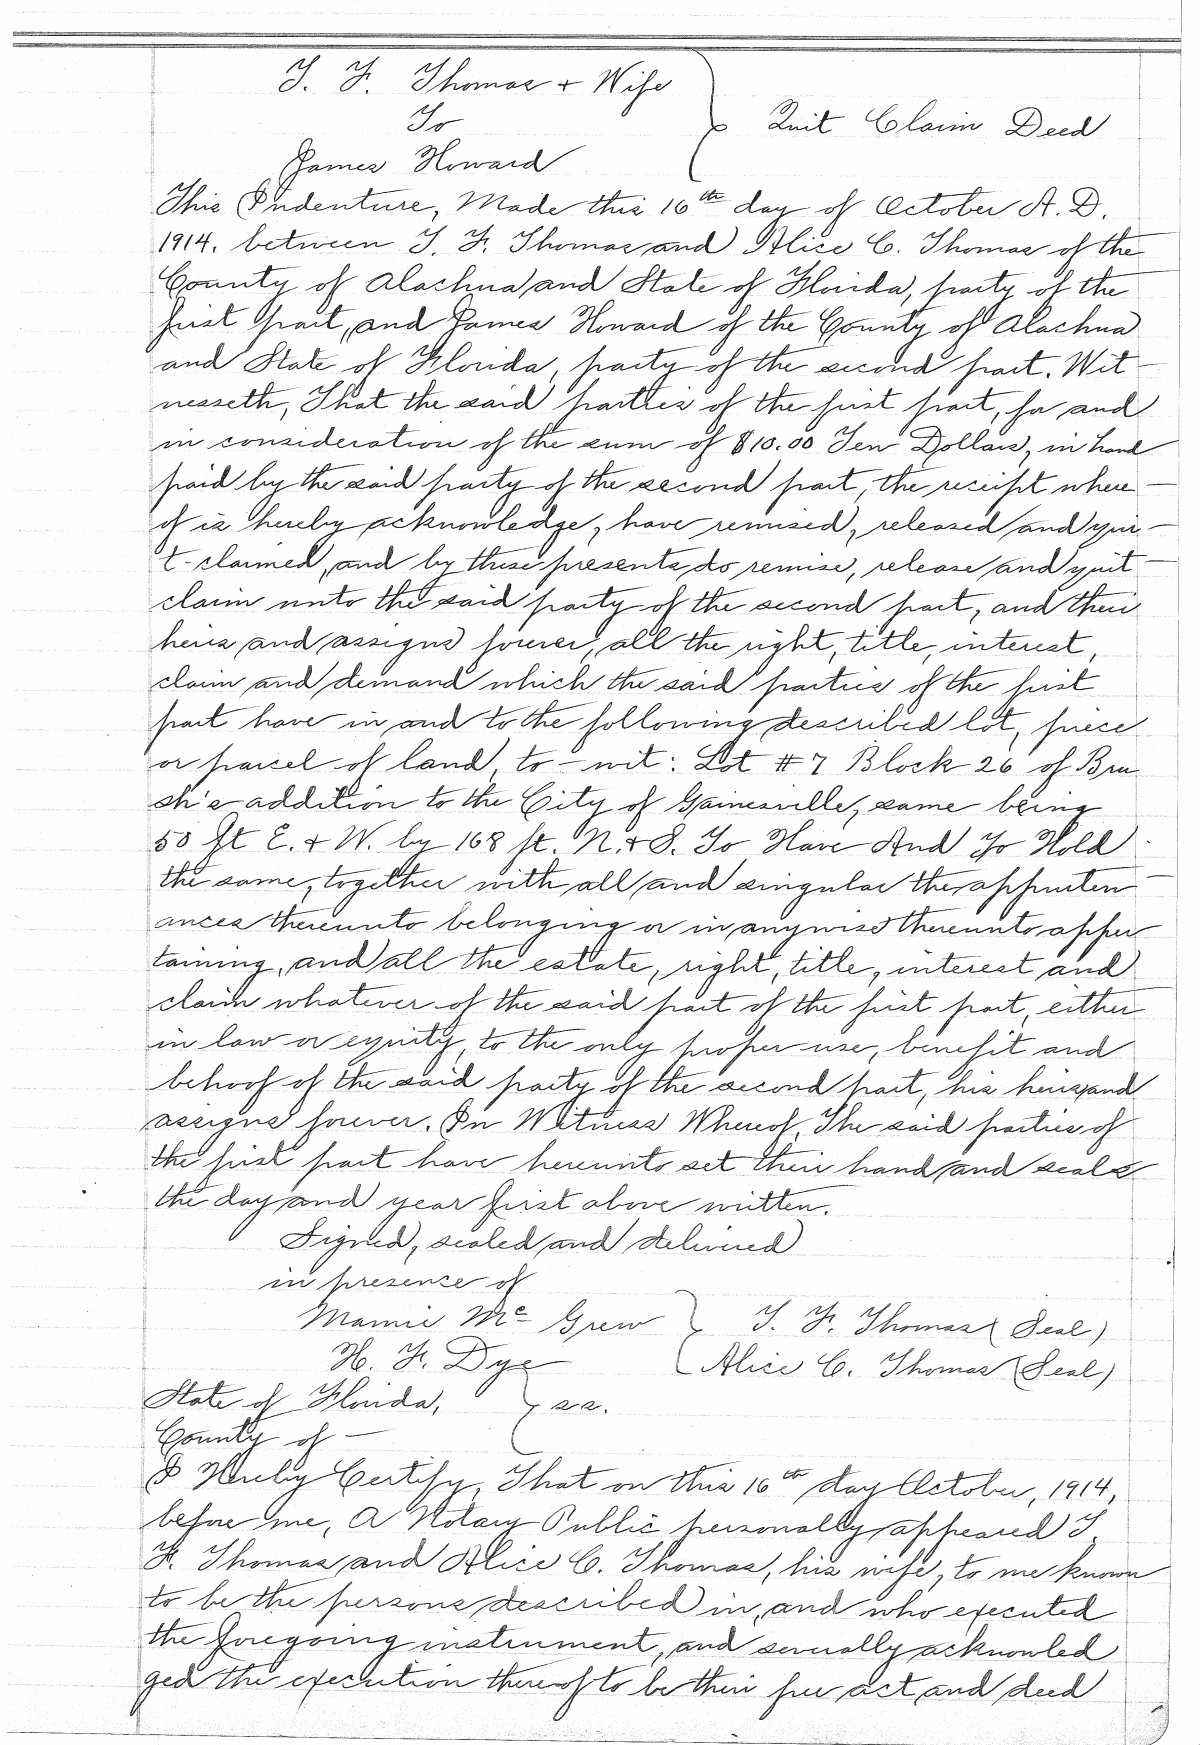 T. F. Thomas + Wife
To
Quit Claim Deed
James Howard
This Indenture, Made this 16th day of October A. D.
1914, between T. F. Thomas and Alice C. Thomas of the
County of Alachua and State of Florida, party of the
first part, and James Howard of the County of Alachua
and State of Florida, party of the second part. Wit-
nesseth, That the said parties of the first part, for and
in consideration of the sum of $10.00 Ten Dollars, in hand
paid by the said party of the second part, the receipt where-
of is hereby acknowledge, have remised, released and qui-
t-claimed, and by these presents do remise, release and quit-
claim unto the said party of the second part, and their
heirs and assigns forever, all the right, title, interest,
claim and demand which the said parties of the first
part have in and to the following described lot, piece
or parcel of land, to-wit: Lot #7 Block 26 of Bru
sh's addition to the City of Gainesville, same being
50 ft E. + W. by 168 ft. N. + S. To Have And To Hold
the same, together with all and singular the appurten-
ances thereunto belonging or in anywise thereunto apper
taining, and all the estate, right, title, interest and
claim whatever of the said part of the first part, either
in law or equity, to the only proper use, benefit and
behoof of the said party of the second part, his heirs and
assigns forever. In Witness Whereof, The said parties of
the first part have hereunto set their hand and seals
the day and year first above written.
Signed, sealed and delivered
in presence of
Mamie Mc Grew T. F. Thomas (Seal)
H. F. Dye Alice C. Thomas (Seal)
State of Florida, ss.
County of —
I Hereby Certify, That on this 16th day October, 1914,
before me, A Notary Public personally appeared T.
F. Thomas and Alice C. Thomas, his wife, to me known
to be the persons described in, and who executed
the foregoing instrument, and severally acknowled
ged the execution thereof to be their free act and deed